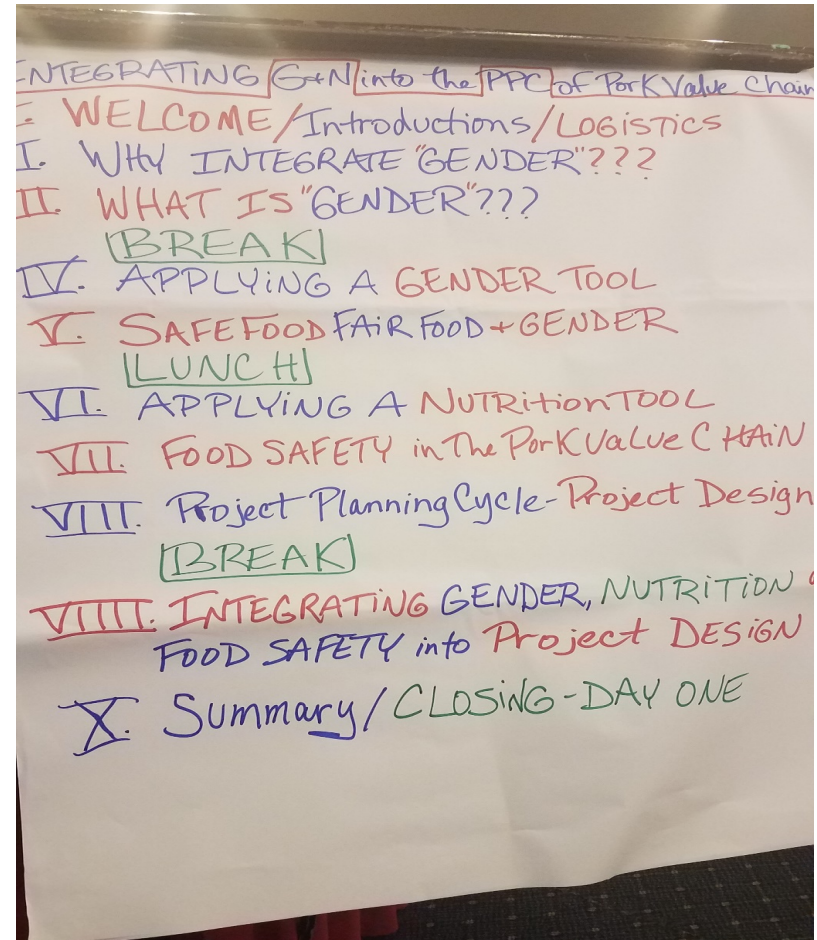 INTEGRATING G+N into the PPC of Pork Value Chain
I. WELCOME/Introductions/LOGISTICS
I. WHY INTEGRATE "GENDER"???
II. WHAT IS "GENDER"???
BREAK
IV. APPLYING A GENDER TOOL
V. SAFE FOOD FAIR FOOD + GENDER
LUNCH
VI. APPLYING A NUTRITION TOOL
VII. FOOD SAFETY in The PORK VALUE CHAIN
VIII. Project Planning Cycle - Project Design
BREAK
VIIII. INTEGRATING GENDER, NUTRITION
FOOD SAFETY into Project DESIGN
X. Summary/CLOSING-DAY ONE